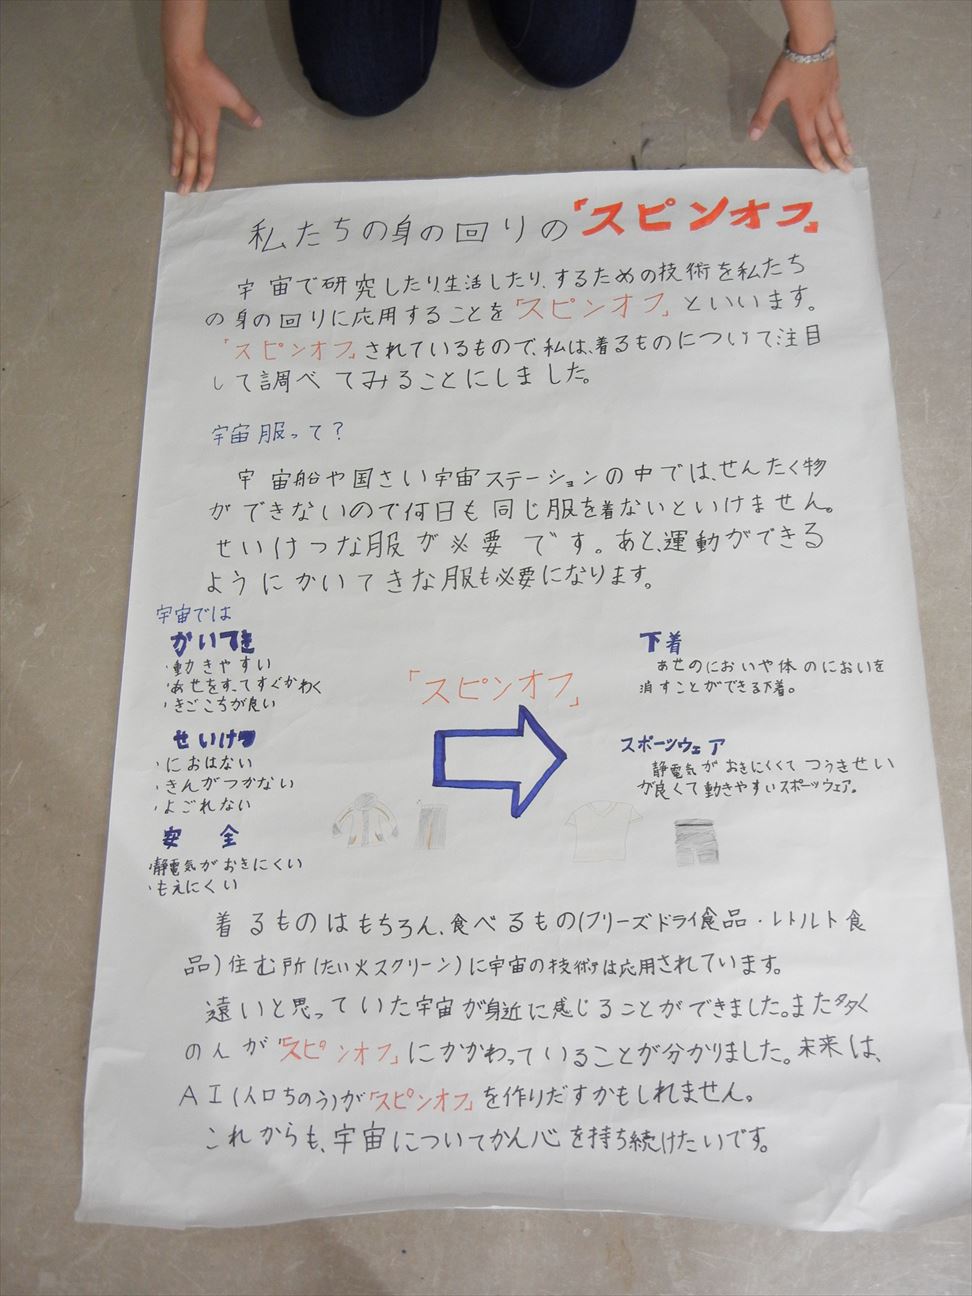 私たちの身の回りの「スピンオフ」
宇宙で研究したり、生活したり、するための技術を私たち
の身の回りに応用することを「スピンオフ」といいます。
「スピンオフ」されているもので、私は、着るものについて注目
して調べてみることにしました。
宇宙服って？
宇宙船や国さい宇宙ステーションの中では、せんたく物
ができないので何日も同じ服を着ないといけません。
せいけつな服が必要です。あと、運動ができる
ようにかいてきな服も必要になります。
宇宙では
かいてき
・動きやすい
・あせをすってすぐかわく
・きごこちが良い
せいけつ
・におはない
・きんがつかない
・よごれない
安全
・静電気がおきにくい
・もえにくい
「スピンオフ」
下着
あせのにおいや体のにおいを
消すことができる下着。
スポーツウェア
静電気がおきにくくてつうきせい
が良くて動きやすいスポーツウェア。
着るものはもちろん、食べるもの(フリーズドライ食品・レトルト食
品)住む所(たい火スクリーン)に宇宙の技術は応用されています。
遠いと思っていた宇宙が身近に感じることができました。また多く
の人が「スピンオフ」にかかわっていることが分かりました。未来は、
AI(人口ちのう)が「スピンオフ」を作りだすかもしれません。
これからも、宇宙についてかん心を持ち続けたいです。